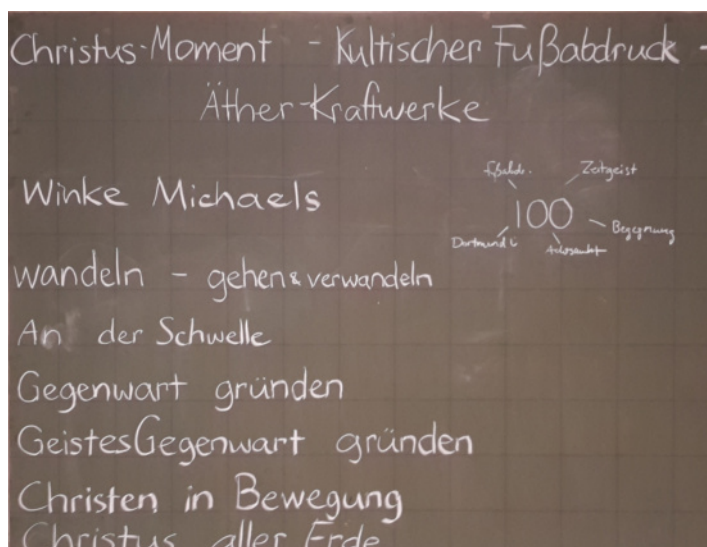 Christus-Moment - Kultischer Fußabdruck -
Äther-Kraftwerke
Winke Michaels
Zeitgeist
100
Begegnung
Dortmund
wandeln - gehen & verwandeln
An der Schwelle
Gegenwart gründen
GeistesGegenwart gründen
Christen in Bewegung
Christus aller Erde